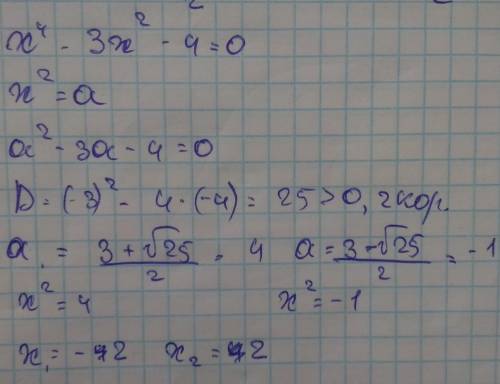 x⁴ - 3x² - 4 = 0
x² = a
a² - 3a - 4 = 0
D = (-3)² - 4·(-4) = 25 > 0, 2 кор.
a₁ = (3 + √25)/2 = 4    a = (3 - √25)/2 = -1
x² = 4    x² = -1
x₁ = -2    x₂ = 2